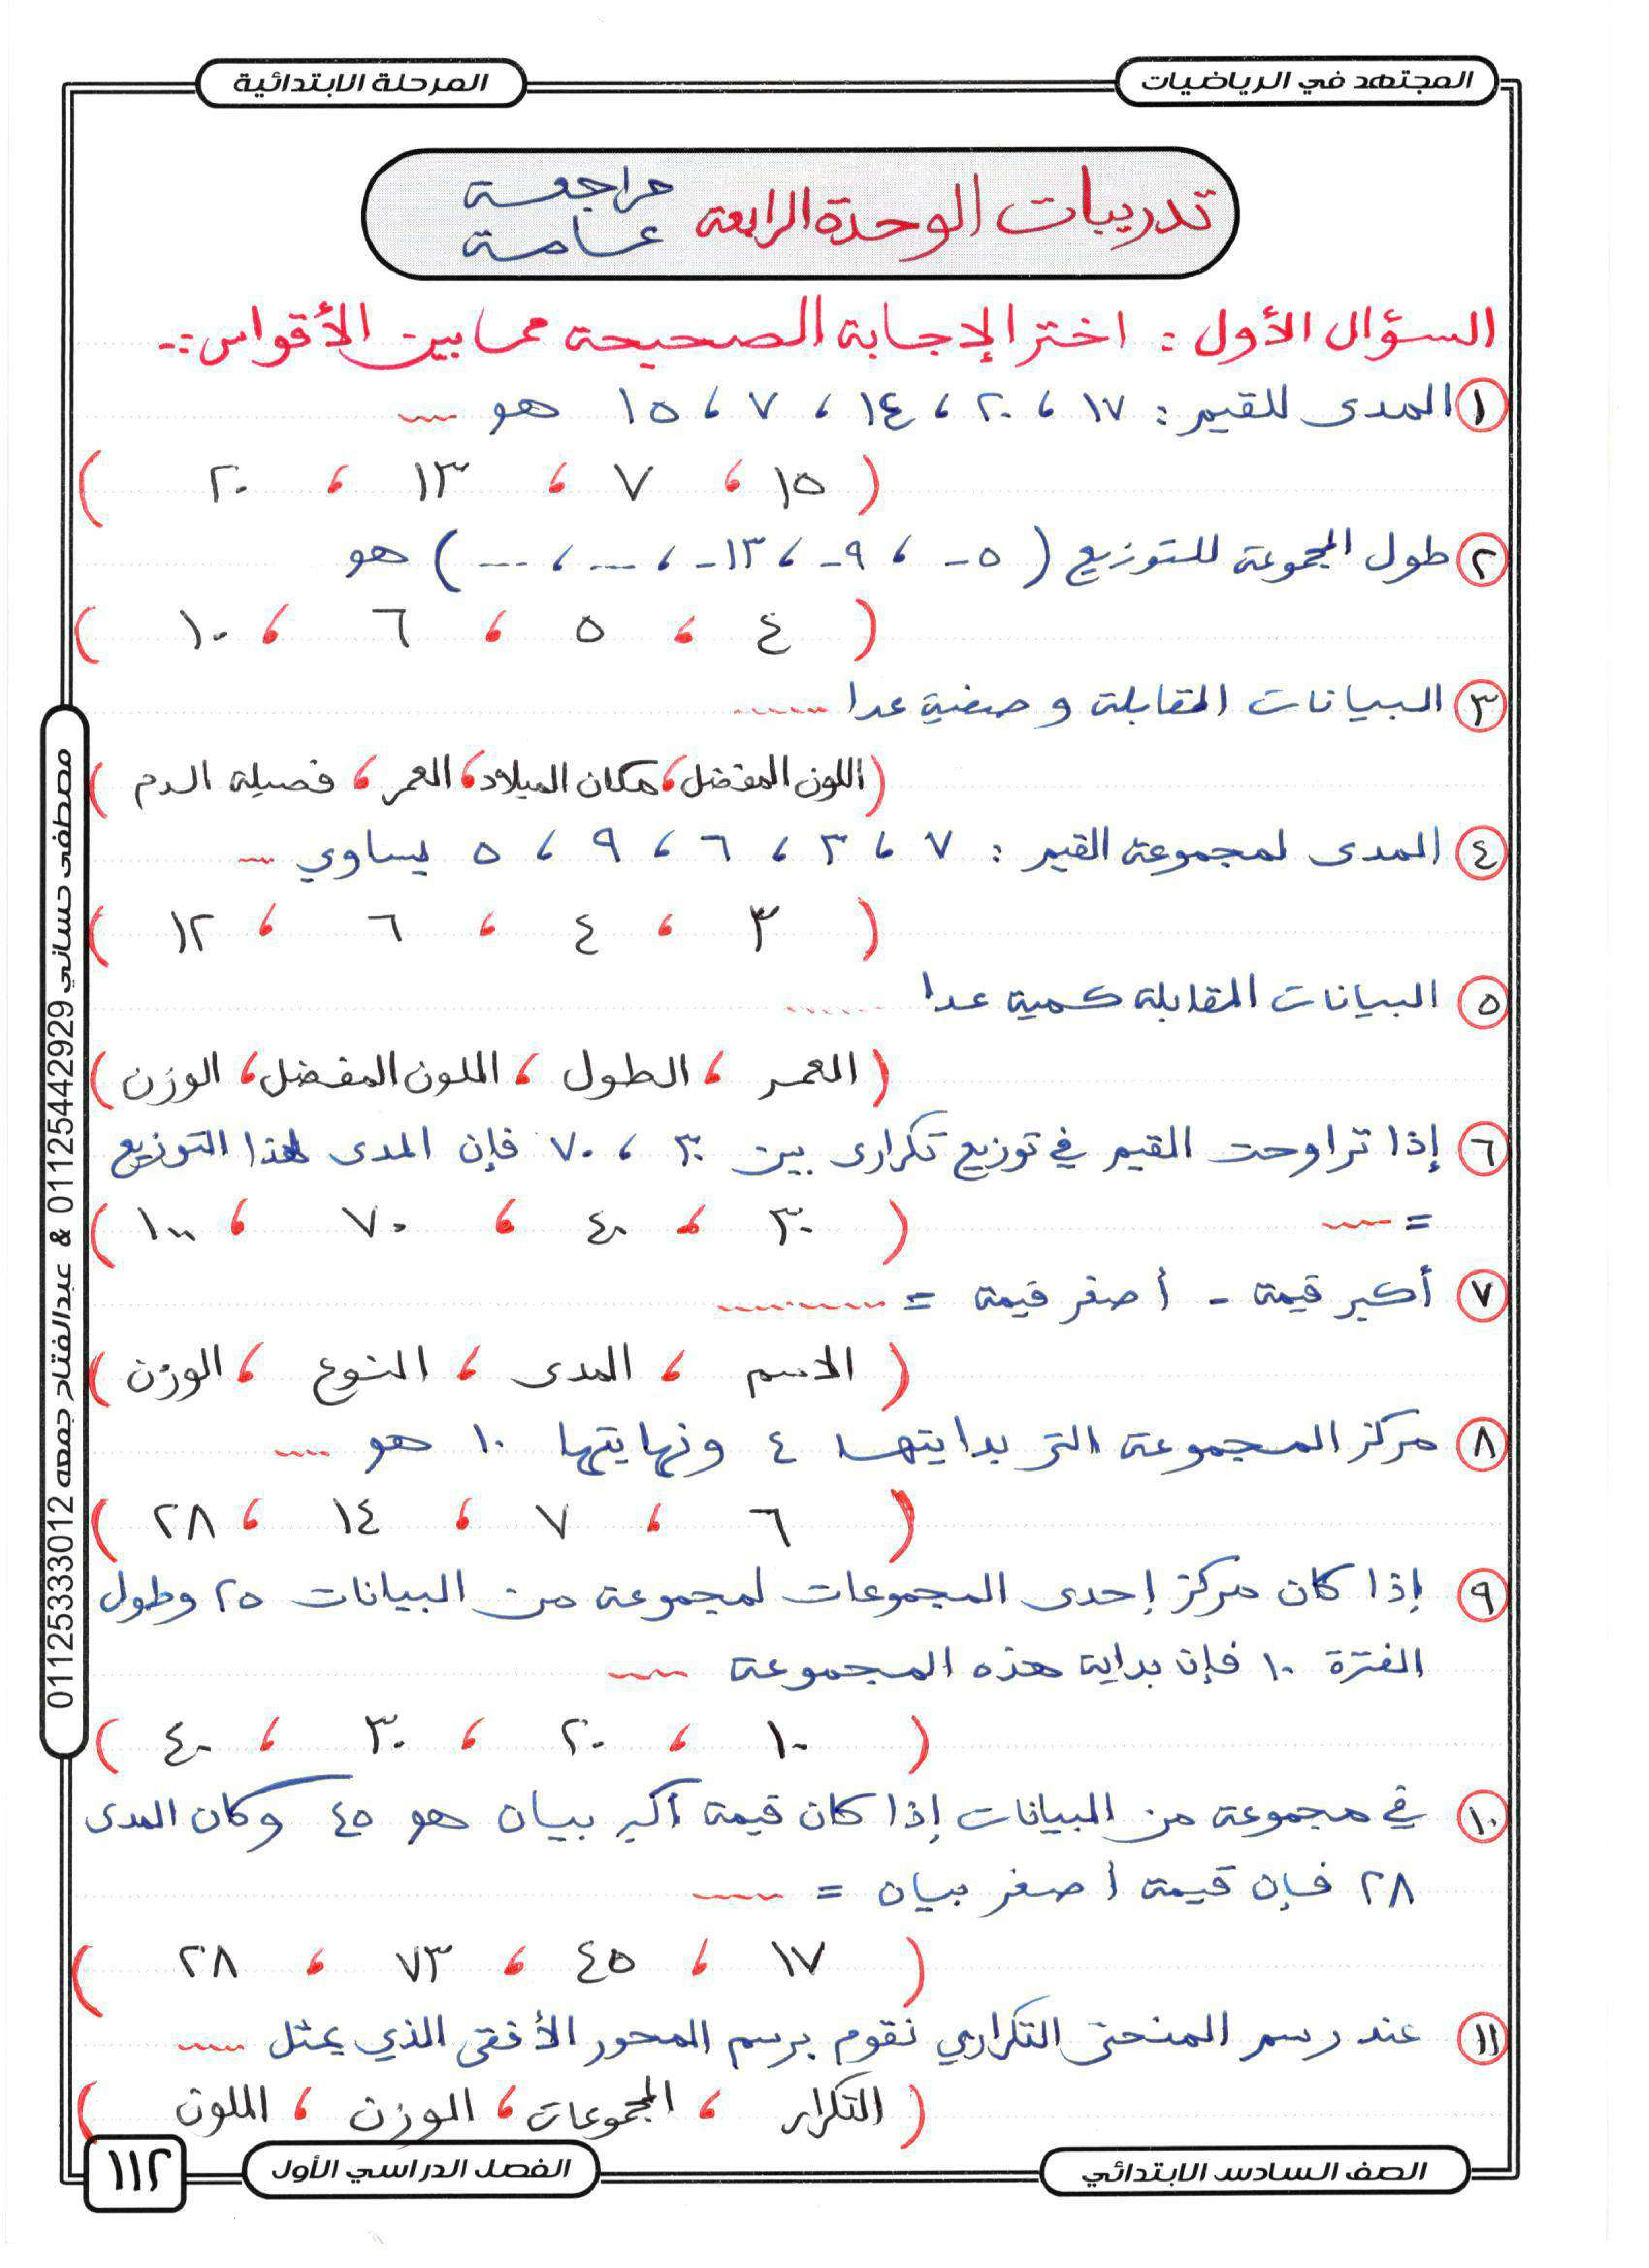 المجتهد في الرياضيات
المرحلة الابتدائية
تدريبات الوحدة الرابعة مراجعة عامة
السؤال الأول : اختر الإجابة الصحيحة مما بين الأقواس :-
١ المدى للقيم : ١٧ ، ٢٠ ، ١٤ ، ٧ ، ١٥ هو ....
( ١٥ ، ٧ ، ١٣ ، ٢٠ )
٢ طول المجموعة للتوزيع ( ٥- ، ٩- ، ١٣- ، --- ، --- ) هو
( ٤ ، ٥ ، ٦ ، ١٠ )
٣ البيانات المقابلة وصفية عدا ......
( اللون المفضل ، مكان الميلاد ، العمر ، فصيلة الدم )
٤ المدى لمجموعة القيم : ٧ ، ٣ ، ٦ ، ٩ ، ٥ يساوي ...
( ٣ ، ٤ ، ٦ ، ١٢ )
٥ البيانات المقابلة كمية عدا ......
( العمر ، الطول ، اللون المفضل ، الوزن )
٦ إذا تراوحت القيم في توزيع تكرارى بين ٣٠ ، ٧٠ فإن المدى لهذا التوزيع
= ....
( ٣٠ ، ٤٠ ، ٧٠ ، ١٠٠ )
٧ أكبر قيمة - أصغر قيمة = .........
( الاسم ، المدى ، النوع ، الوزن )
٨ مركز المجموعة التى بدايتها ٤ ونهايتها ١٠ هو ....
( ٦ ، ٧ ، ١٤ ، ٢٨ )
٩ إذا كان مركز إحدى المجموعات لمجموعة من البيانات ٢٥ وطول
الفترة ١٠ فإن بداية هذه المجموعة ....
( ١٠ ، ٢٠ ، ٣٠ ، ٤٠ )
١٠ في مجموعة من البيانات إذا كان قيمة أكبر بيان هو ٤٥ وكان المدى
٢٨ فإن قيمة أصغر بيان = .....
( ١٧ ، ٤٥ ، ٧٣ ، ٢٨ )
١١ عند رسم المنحنى التكراري نقوم برسم المحور الأفقى الذي يمثل ....
( التكرار ، المجموعات ، الوزن ، اللون )
مصطفى حساني 01125442929 & عبدالفتاح جمعه 01125333012
الصف السادس الابتدائي
الفصل الدراسي الأول
١١٢